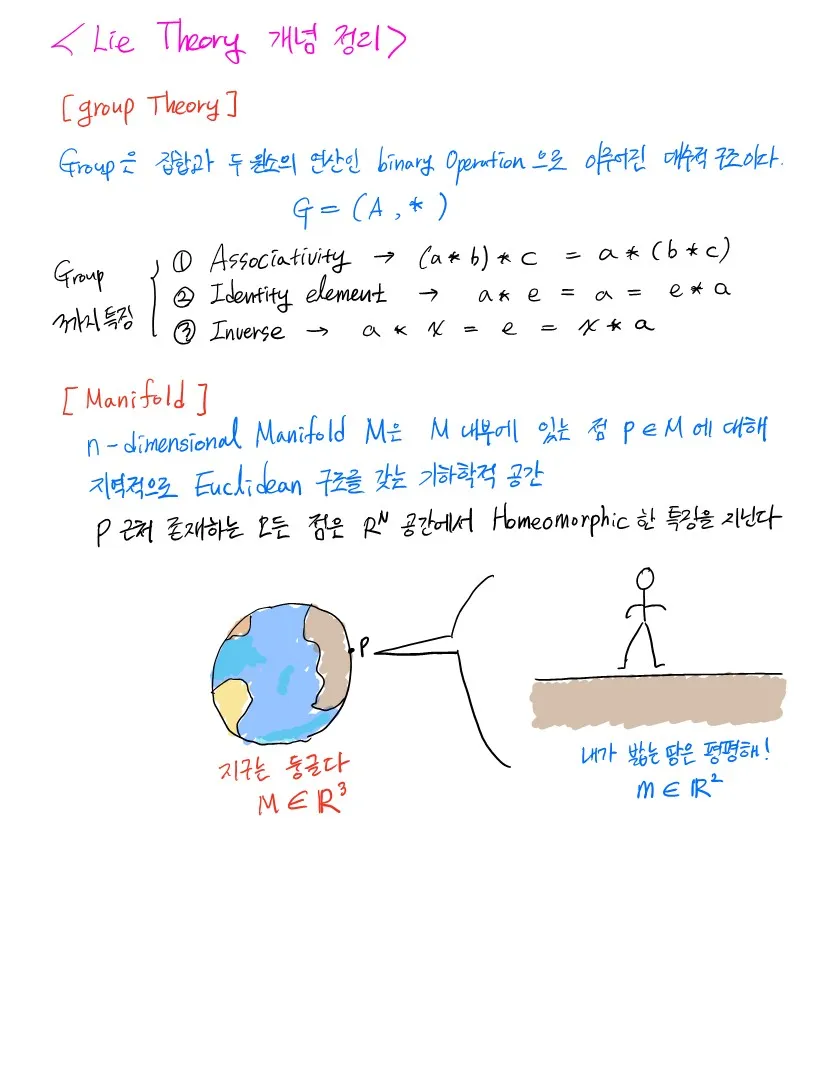 < Lie Theory 개념 정리 >
[group Theory]
Group은 집합과 두 원소의 연산인 binary Operation 으로 이루어진 대수적 구조이다.
G = (A , * )
Group
3가지 특징
① Associativity → (a * b) * c = a * (b * c)
② Identity element → a * e = a = e * a
③ Inverse → a * x = e = x * a
[Manifold]
n-dimensional Manifold M은 M 내부에 있는 점 p ∈ M 에 대해
지역적으로 Euclidean 구조를 갖는 기하학적 공간
P 근처 존재하는 모든 점은 R^N 공간에서 Homeomorphic 한 특징을 지닌다
P
지구는 둥글다
M ∈ ℝ³
내가 밟는 땅은 평평해!
m ∈ ℝ²